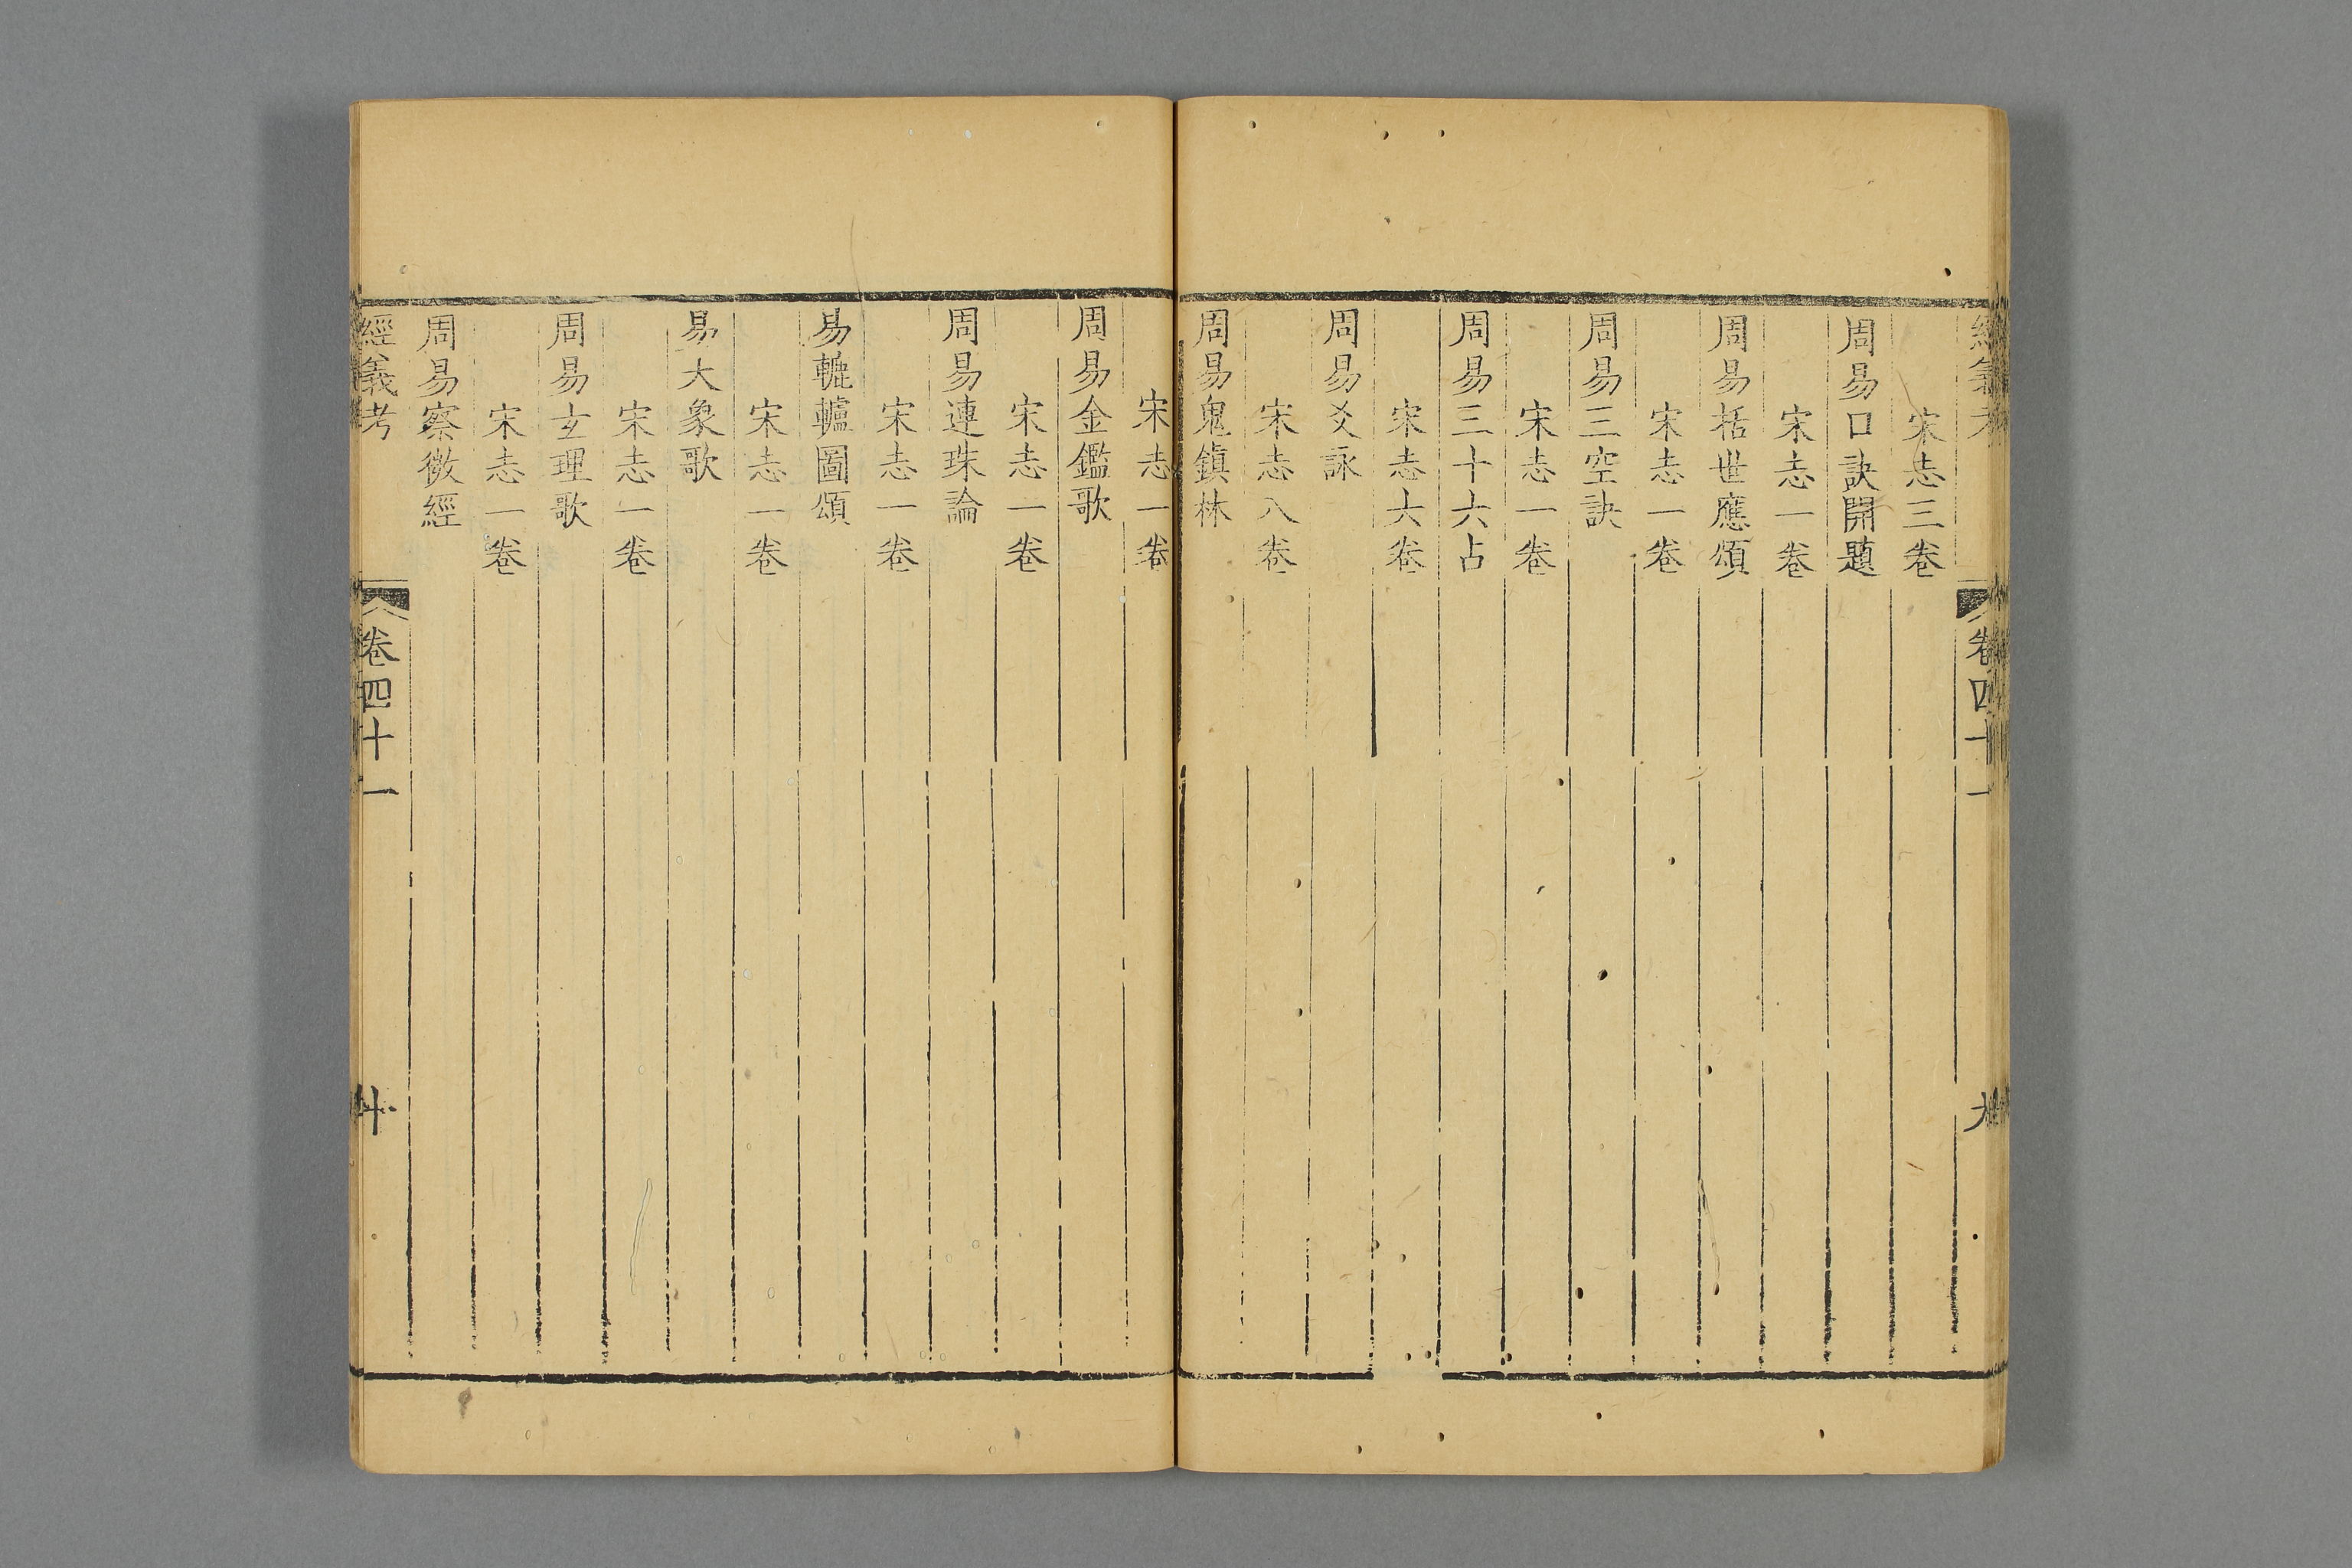 經義考 卷四十一 九
宋志三卷
周易口訣開題
宋志一卷
周易括世應頌
宋志一卷
周易三空訣
宋志一卷
周易三十六占
宋志六卷
周易爻詠
宋志八卷
周易鬼鎮林
宋志一卷
周易金鑑歌
宋志一卷
周易連珠論
宋志一卷
易轆轤圖頌
宋志一卷
易大象歌
宋志一卷
周易玄理歌
宋志一卷
周易察微經
經義考 卷四十一 十